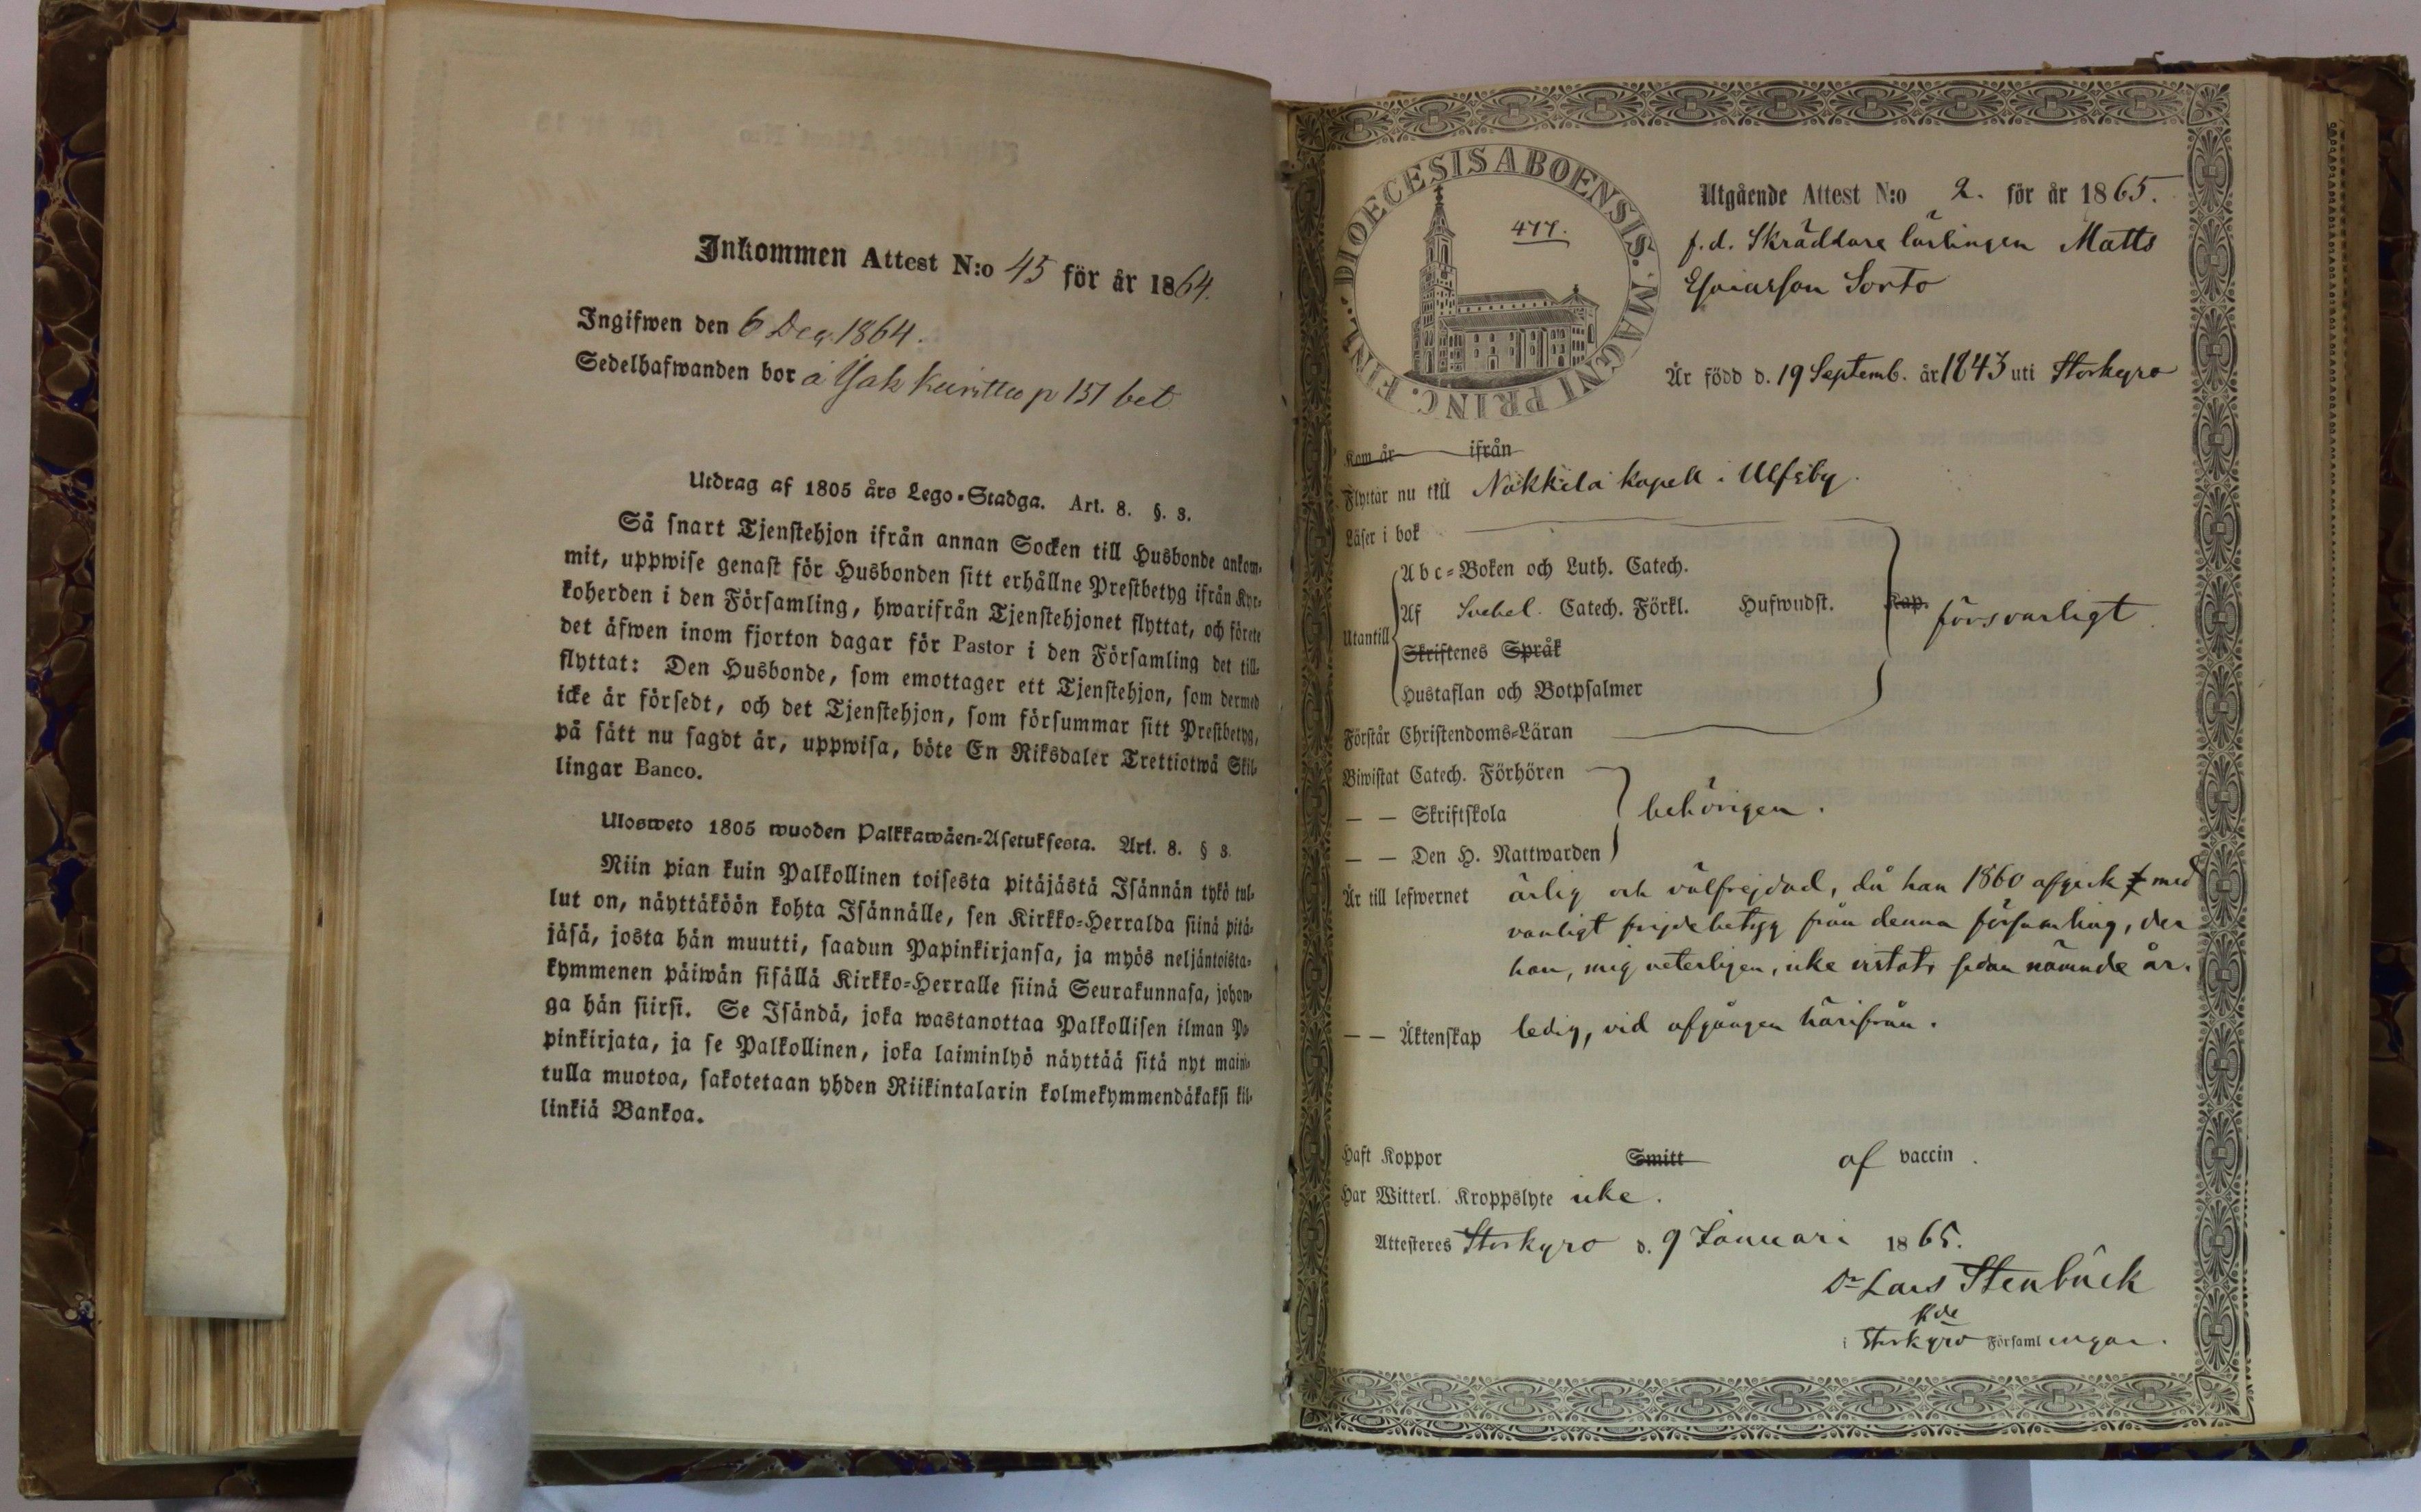 Inkommen Attest N:o 45 för år 1864.
Ingifwen den 6 Dec. 1864.
Sedelhafwanden bor å p 151 bet
Utdrag af 1805 års Lego-Stadga. Art. 8. §. 3.
Så snart Tjenstehjon ifrån annan Socken till Husbonde ankom-
mit, uppwise genast för Husbonden sitt erhållne Prestbetyg ifrån Kyr-
koherden i den Församling, hwarifrån Tjenstehjonet flyttat, och förete
det äfwen inom fjorton dagar för Pastor i den Församling det till-
flyttat: Den Husbonde, som emottager ett Tjenstehjon, som dermed
icke är försedt, och det Tjenstehjon, som försummar sitt Prestbetyg,
på sätt nu sagdt är, uppwisa, böte En Riksdaler Trettiotwå Skil-
lingar Banco.
Ulosweto 1805 wuoden Palkkawäen-Asetuksesta. Art. 8. § 3.
Niin pian kuin Palkollinen toisesta pitäjästä Isännän tykö tul-
lut on, näyttäköön kohta Isännälle, sen Kirkko-Herralda siinä pitä-
jäsä, josta hän muutti, saadun Papinkirjansa, ja myös neljäntoista-
kymmenen päiwän sisällä Kirkko-Herralle siinä Seurakunnasa, johon-
ga hän siirsi. Se Isändä, joka wastanottaa Palkollisen ilman Pa-
pinkirjata, ja se Palkollinen, joka laiminlyö näyttää sitä nyt maini-
tulla muotoa, sakotetaan yhden Riikintalarin kolmekymmendäkaksi kil-
linkiä Bankoa.
DIOECESIS ABOENSIS. MAGNI PRINC. FINL.
477.
Utgående Attest N:o 2. för år 1865.
f.d. Skräddare lärlingen Matts
Esaiasson Sorto
Är född d. 19 Septemb. år 1843 uti Storkyro
Kom år ifrån
Flyttar nu till Nakkila kapell i Ulfsby.
Läser i bok
Abc-Boken och Luth. Catech.
Utantill Af Svebel. Catech. Förkl. Hufwudst. Kap. försvarligt
Skriftenes Språk
Hustaflan och Botpsalmer
Förstår Christendoms-Läran
Biwistat Catech. Förhören
— — Skriftskola behörigen.
— — Den H. Nattwarden
Är till lefwernet ärlig och välfrejdad, då han 1860 afgick med
vanligt frejdebetyg från denna församling, der
han, mig veterligen, icke vistats sedan nämnde år.
— — Äktenskap ledig, vid afgången härifrån.
Haft Koppor Smitt af vaccin.
Har Witterl. Kroppslyte icke.
Attesteres Storkyro d. 9 Januari 1865.
Dr Lars Stenbäck
Kde
i Storkyro Församlingar.